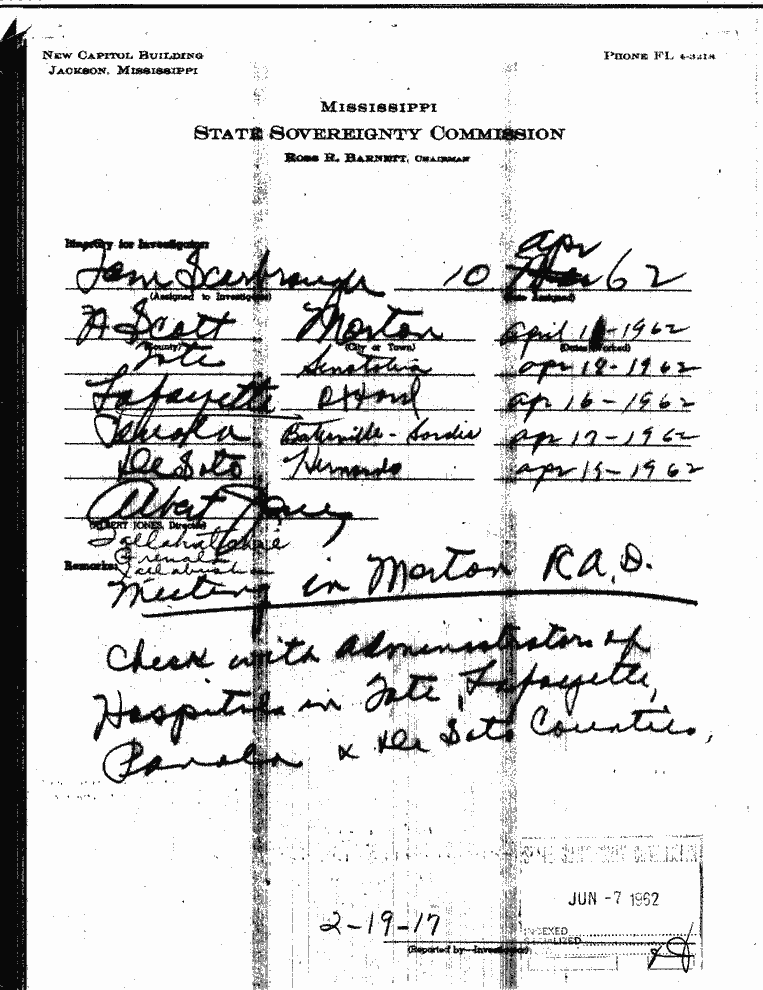 NEW CAPITOL BUILDING
JACKSON, MISSISSIPPI
PHONE FL 4-3218
MISSISSIPPI
STATE SOVEREIGNTY COMMISSION
ROSS R. BARNETT, CHAIRMAN
Itinerary for Investigator:
Tom Scarbrough 10 apr 62
(Assigned to Investigator) (Date Assigned)
Scott Morton april 1 -1962
(County) (City or Town) (Dates Worked)
Tate Senatobia apr 18-1962
Lafayette Oxford apr 16-1962
Panola Batesville-Sardis apr 17-1962
De Soto Hernando apr 19-1962
Albert Jones
(ALBERT JONES, Director)
Tallahatchie
Grenada
Yalobusha
Remarks:
Meeting in Morton R.A.D.
Check with administrators of
Hospitals in Tate, Lafayette,
Panola & De Soto Counties,
JUN -7 1962
2-19-17
INDEXED
SERIALIZED
(Reported by—Investigator)